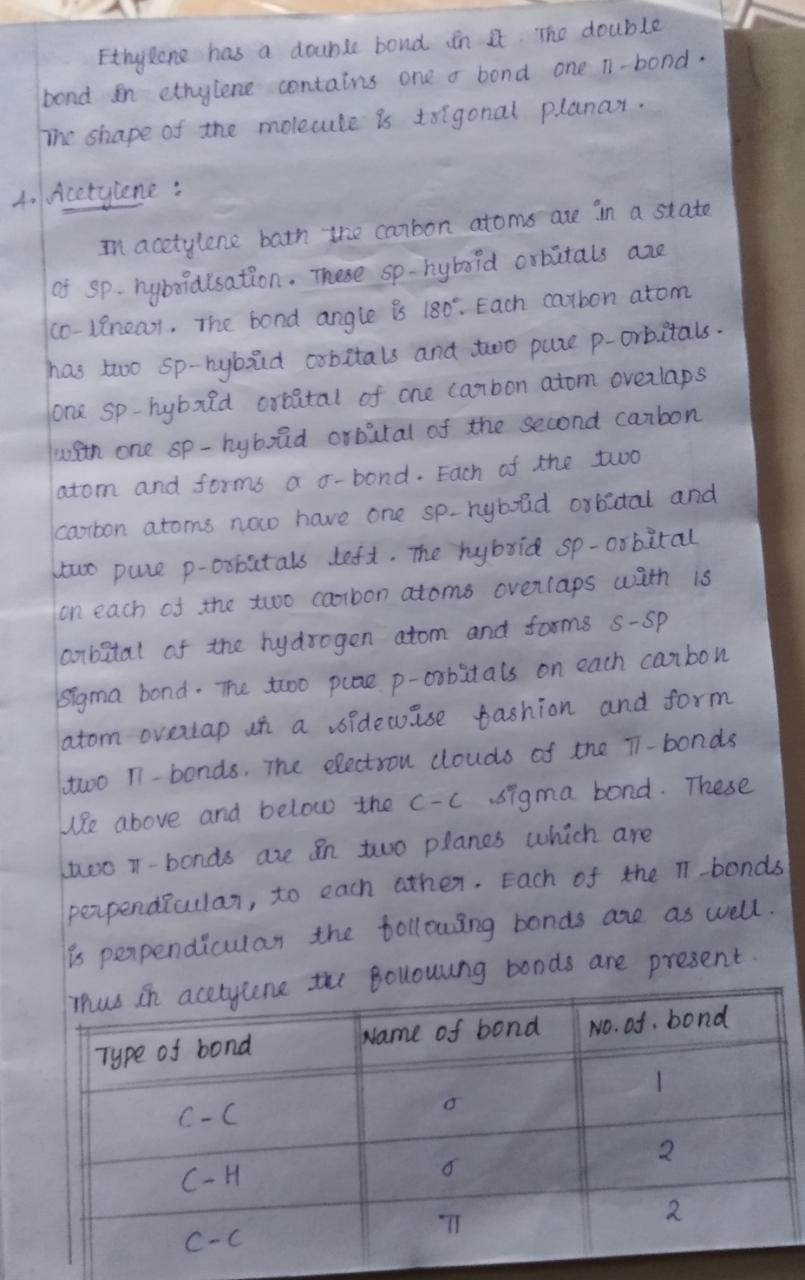 Ethylene has a double bond in it. The double
bond in ethylene contains one σ bond one π-bond.
The shape of the molecule is trigonal planar.
4. Acetylene :
In acetylene bath the carbon atoms are in a state
of sp-hybridisation. These sp-hybrid orbitals are
co-linear. The bond angle is 180°. Each carbon atom
has two sp-hybrid orbitals and two pure p-orbitals.
one sp-hybrid orbital of one carbon atom overlaps
with one sp-hybrid orbital of the second carbon
atom and forms a σ-bond. Each of the two
carbon atoms now have one sp-hybrid orbital and
two pure p-orbitals left. The hybrid sp-orbital
on each of the two carbon atoms overlaps with 1s
orbital of the hydrogen atom and forms s-sp
sigma bond. The two pure p-orbitals on each carbon
atom overlap in a sidewise fashion and form
two π-bonds. The electron clouds of the π-bonds
lie above and below the C-C sigma bond. These
two π-bonds are in two planes which are
perpendicular, to each other. Each of the π-bonds
is perpendicular the following bonds are as well.
Thus in acetylene the following bonds are present.
Type of bond Name of bond No. of. bond
C-C σ 1
C-H σ 2
C-C π 2